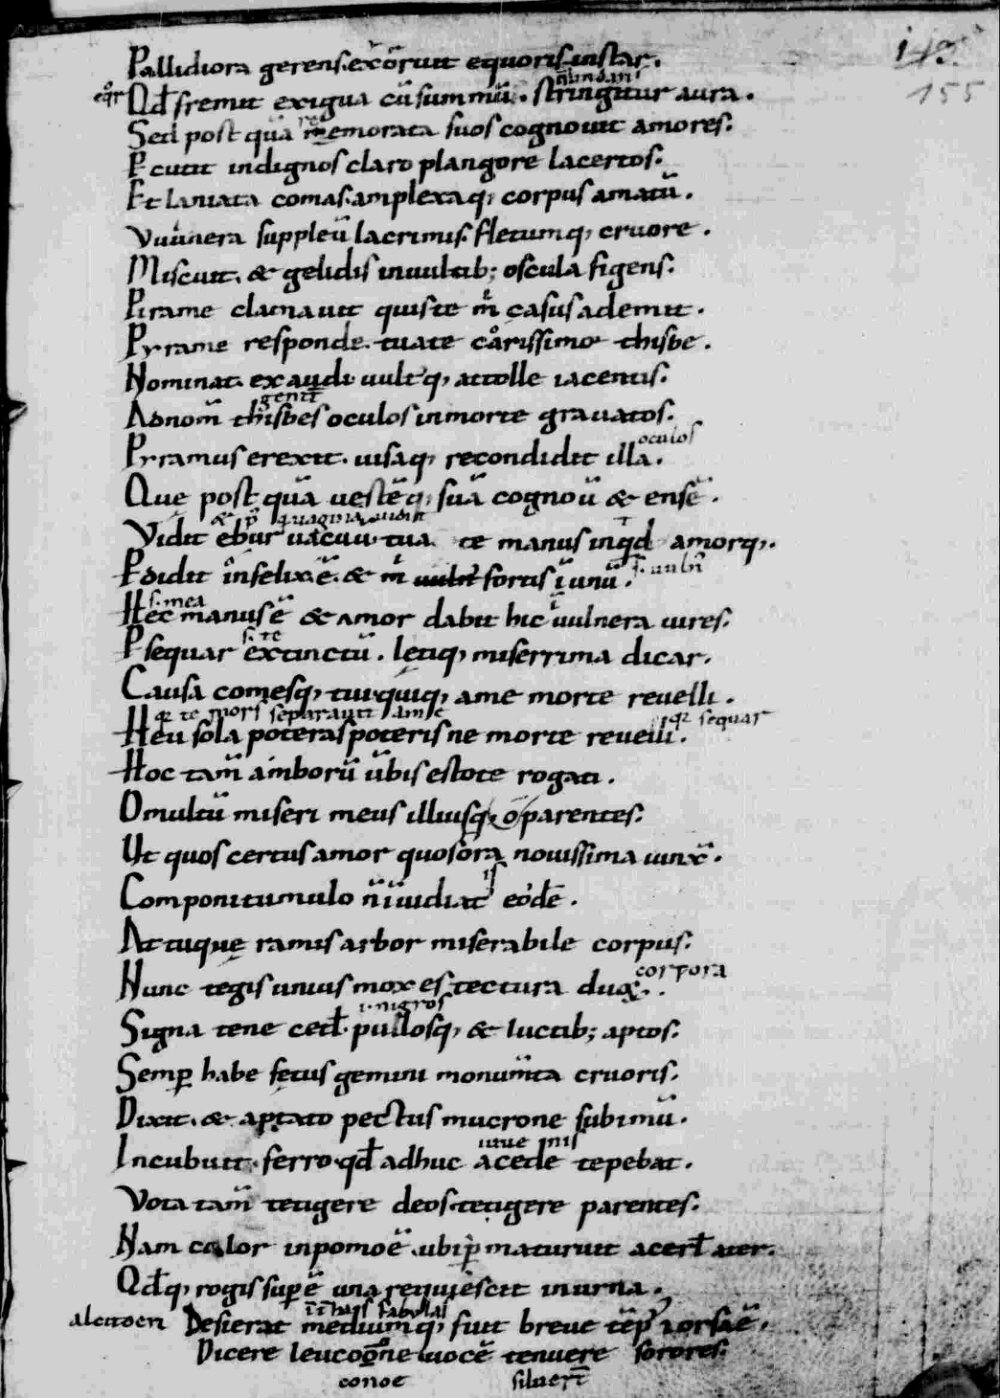 Pallidiora gerens. exorruit equoris instar.
Qd fremit exigua cũ summũ. stringitur aura.
Sed post quã remorata suos cognouit amores.
Pcutit indignos claro plangore lacertos.
Et laniata comas. amplexaq; corpus amatũ.
Vuulnera suppleũ lacrimis. fletumq; cruore.
Miscuit. & gelidis inuultib; oscula figens.
Pirame clamauit quis te m̃ casus ademit.
Pyrame responde. tua te carissime thisbe.
Nominat. exaudi uultq; attolle iacentis.
genit̃
Ad nom̃ thisbes oculos in morte grauatos.
oculos
Pyramus erexit. uisaq; recondidit illa.
Quę post quã uestẽq; suã cognoũ & ensẽ.
Vidit ebur uacuũ. tua te manus inqd amorq;.
Pdidit infelix ẽ. & m̃ fortis ĩ unũ.
s. mea
Hec manus ẽ & amor dabit hic ĩ uulnera uires.
s. te
Psequar extinctũ. letiq; miserrima dicar.
Causa comesq; tui. quiq; a me morte reuelli.
sequar
Heu sola poteras poteris ne morte reuelli.
Hoc tam̃ amborũ ũbis estote rogati.
O multũ miseri meus illiusq; o parentes.
Ut quos certus amor quos ora nouissima iunx̃.
Componi tumulo ñ inuidiatis eodẽ.
At tu quę ramis arbor miserabile corpus.
corpora
Nunc tegis unius mox es tectura duoꝝ.
i. nigros
Signa tene ced. pullosq; & luctib; aptos.
Semp habe fętus gemini monum̃ta cruoris.
Dixit. & aptato pectus mucrone sub imũ.
Incubuit. ferro. qd adhuc a cede tepebat.
Vota tam̃ tetigere deos. tetigere parentes.
Nam color in pomo ẽ. ubi pmaturuit acerb ater.
Qdq; rogis supẽ una requiescit in urna.
ĩ his fabulas
alcitoen Desierat mediumq; fuit breue tẽp & orsa ẽ.
Dicere leucogne uocẽ tenuere sorores.
conoe siluert̃